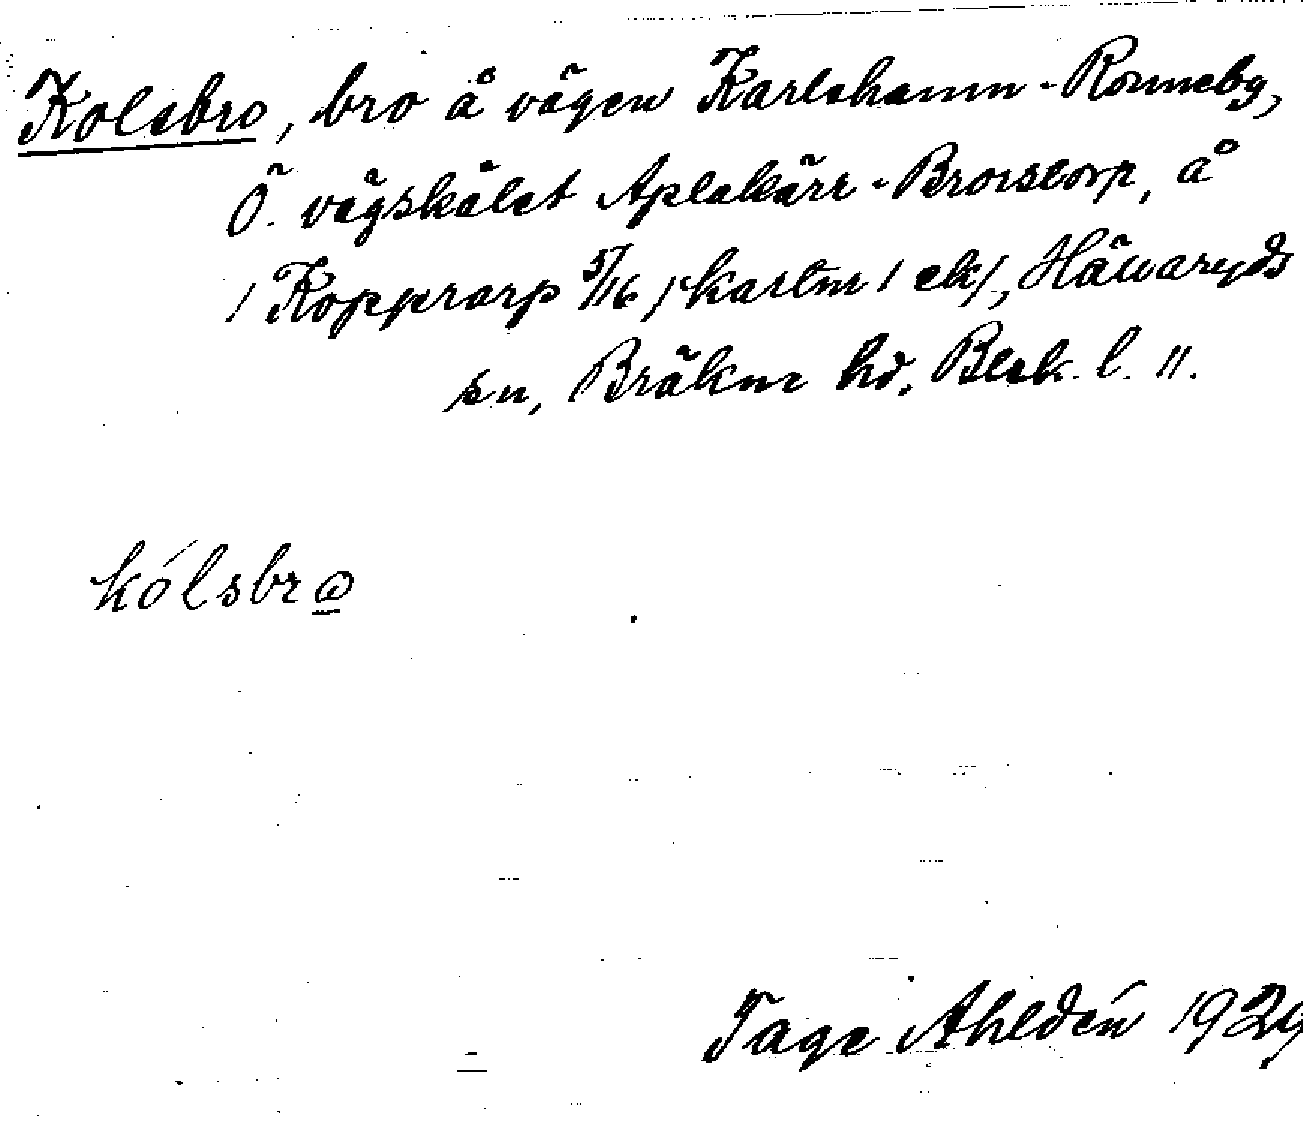 Kolsbro, bro å vägen Karlshamn - Ronneby,
Ö. vägskälet Aplekärr - Brorstorp, å
1 Kopprarp 5/16 /kartnr 1 ek/, Hällaryds
sn, Bräkne hd, Blek. l. 11.
kólsbrω
Tage Ahldén 1929